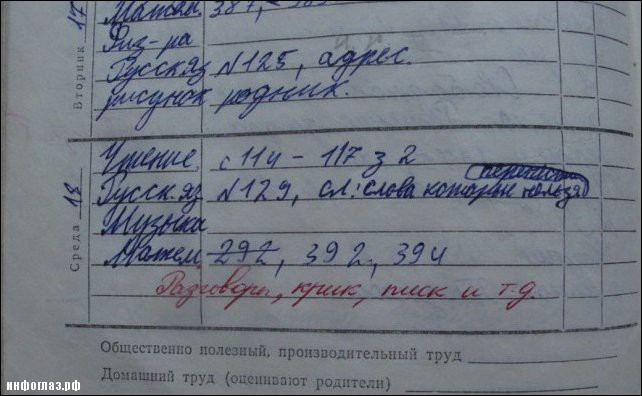 Вторник 17
Матем 387,
Физ-ра
Русск.яз N125, адрес.
рисунок родник.
Среда 18
Чтение с 114 – 117 з 2
перенести
Русск.яз N129, сл: слова которые нельзя
Музыка
Матем 292, 392, 394
Разговоры, крик, писк и т.д.
Общественно полезный, производительный труд
Домашний труд (оценивают родители)
инфоглаз.рф